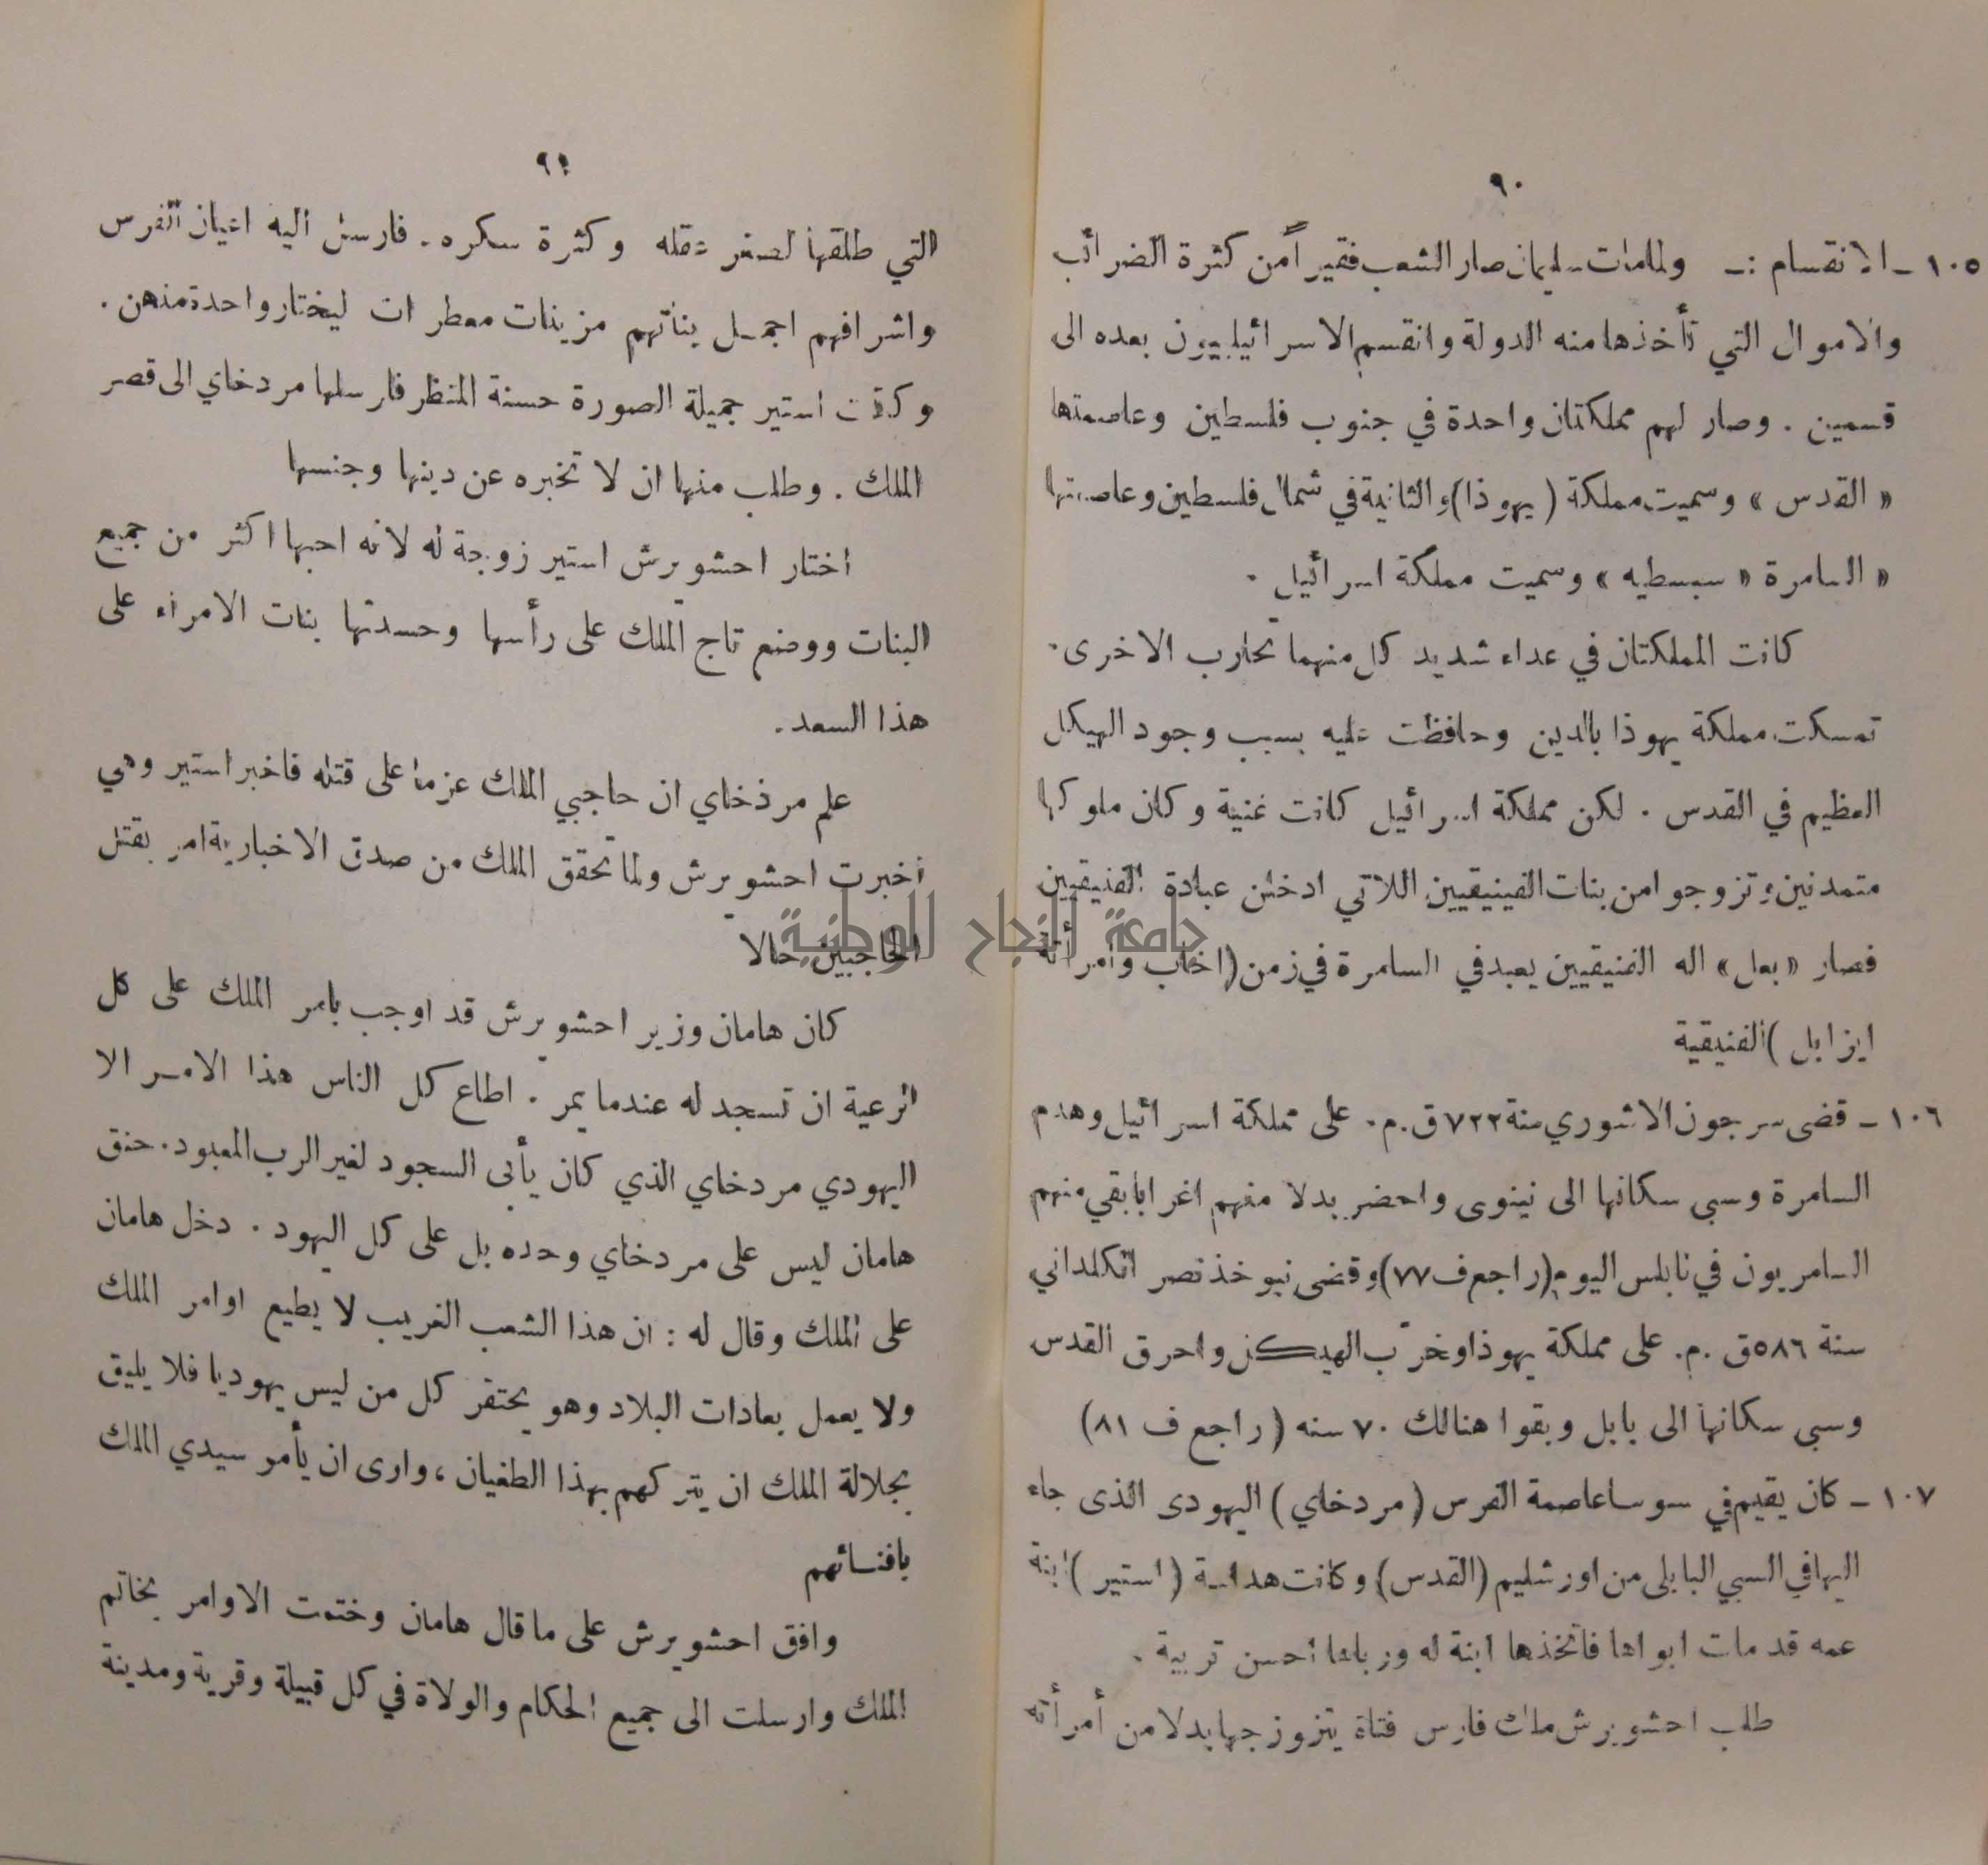 ٩٠
١٠٥ ـ الانقسام :ـ ولما مات سليمان صار الشعب فقيراً من كثرة الضرائب
والاموال التي تأخذها منه الدولة وانقسم الاسرائيليون بعده الى
قسمين . وصار لهم مملكتان واحدة في جنوب فلسطين وعاصمتها
« القدس » وسميت مملكة ( يهوذا ) والثانية في شمال فلسطين وعاصمتها
« السامرة « سبسطيه » وسميت مملكة اسرائيل .
كانت المملكتان في عداء شديد كل منهما تحارب الاخرى .
تمسكت مملكة يهوذا بالدين وحافظت عليه بسبب وجود الهيكل
العظيم في القدس . لكن مملكة اسرائيل كانت غنية وكان ملوكها
متمدنين وتزوجوا من بنات الفينيقيين اللاتي ادخلن عبادة الفنيقيين
فصار « بعل » اله الفنيقيين يعبد في السامرة في زمن ( اخاب وامرأته
ايزابل ) الفنيقية
١٠٦ ـ قضى سرجون الاشوري سنة ٧٢٢ ق.م. على مملكة اسرائيل وهدم
السامرة وسبى سكانها الى نينوى واحضر بدلا منهم اغرابا بقي منهم
السامريون في نابلس اليوم ( راجع ف ٧٧ ) وقضى نبوخذنصر الكلداني
سنة ٥٨٦ ق .م. على مملكة يهوذا وخرّب الهيكل واحرق القدس
وسبى سكانها الى بابل وبقوا هنالك ٧٠ سنه ( راجع ف ٨١ )
١٠٧ ـ كان يقيم في سوسا عاصمة الفرس ( مردخاي ) اليهودى الذى جاء
اليها في السبي البابلى من اورشليم ( القدس ) وكانت هداسة ( استير ) ابنة
عمه قد مات ابواها فاتخذها ابنة له ورباها احسن تربية .
طلب احشويرش ملك فارس فتاة يتزوزجها بدلا من أمرأته
٩١
التي طلقها لصغر عقله وكثرة سكره . فارسل اليه اعيان الفرس
واشرافهم اجمل بناتهم مزينات معطرات ليختار واحدة منهن .
وكانت استير جميلة الصورة حسنة المنظر فارسلها مردخاي الى قصر
الملك . وطلب منها ان لا تخبره عن دينها وجنسها
اختار احشويرش استير زوجة له لانه احبها اكثر من جميع
البنات ووضع تاج الملك على رأسها وحسدتها بنات الامراء على
هذا السعد .
علم مرذخاي ان حاجبي الملك عزما على قتله فاخبر استير وهي
اخبرت احشويرش ولما تحقق الملك من صدق الاخبارية امر بقتل
الحاجبين حالا
كان هامان وزير احشويرش قد اوجب بامر الملك على كل
الرعية ان تسجد له عندما يمر . اطاع كل الناس هذا الامر الا
اليهودي مردخاي الذي كان يأبى السجود لغير الرب المعبود . حنق
هامان ليس على مردخاي وحده بل على كل اليهود . دخل هامان
على الملك وقال له : ان هذا الشعب الغريب لا يطيع اوامر الملك
ولا يعمل بعادات البلاد وهو يحتقر كل من ليس يهوديا فلا يليق
بجلالة الملك ان يتركهم بهذا الطغيان ، وارى ان يأمر سيدي الملك
بافنائهم
وافق احشويرش على ما قال هامان وختمت الاوامر بخاتم
الملك وارسلت الى جميع الحكام والولاة في كل قبيلة وقرية ومدينة
جامعة النجاح الوطنية